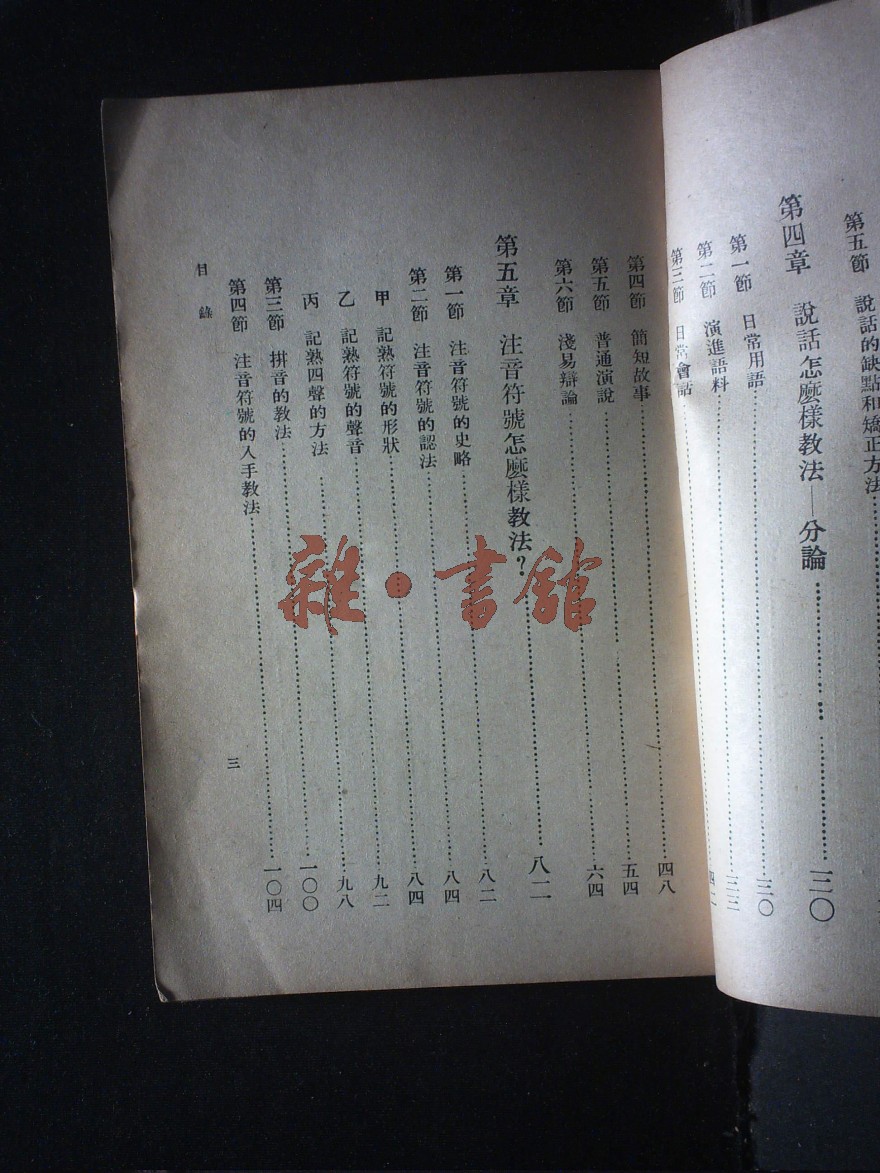 第五節 說話的缺點和矯正方法
第四章 說話怎麼樣教法——分論……三〇
第一節 日常用語……三〇
第二節 演進語料……三三
第三節 日常會話……
第四節 簡短故事……四八
第五節 普通演說……五四
第六節 淺易辯論……六四
第五章 注音符號怎麼樣教法?……八二
第一節 注音符號的史略……八二
第二節 注音符號的認法……八四
甲 記熟符號的形狀……八四
乙 記熟符號的聲音……九二
丙 記熟四聲的方法……九八
第三節 拼音的教法……一〇〇
第四節 注音符號的入手教法……一〇四
目錄 三
雜·書館